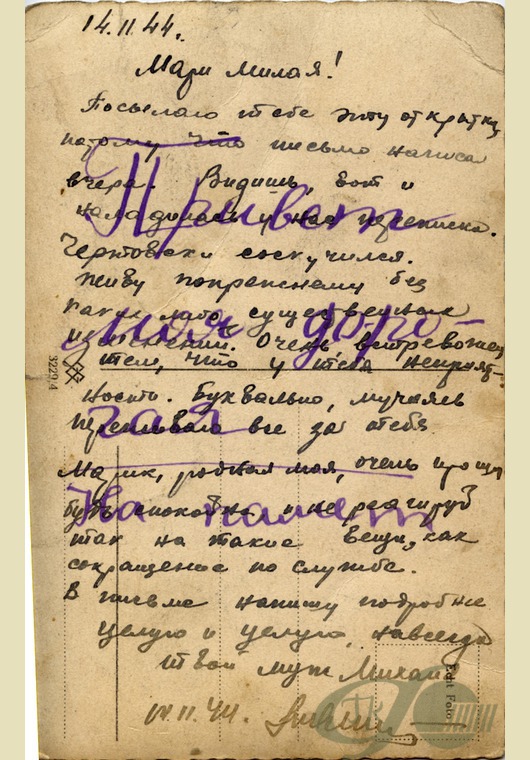 14.11.44.
Мари милая!
Посылаю тебе эту открытку,
потому что письмо написа
вчера. Видишь, вот и
наладилась у нас переписка.
Чертовски соскучился.
Живу попрежнему без
каких либо существенных
изменений. Очень встревожен
тем, что у тебя неприят-
ности. Буквально, мучаясь
переживаю все за тебя
Марик, родная моя, очень прошу
будь спокойна и не реагируй
так на такие вещи, как
сокращение по службе.
В письме напишу подробнее
Целую и целую, навсегда
твой муж Михаил
14.11.44.
Привет
моя доро-
гая
На память
32294
Echt Foto